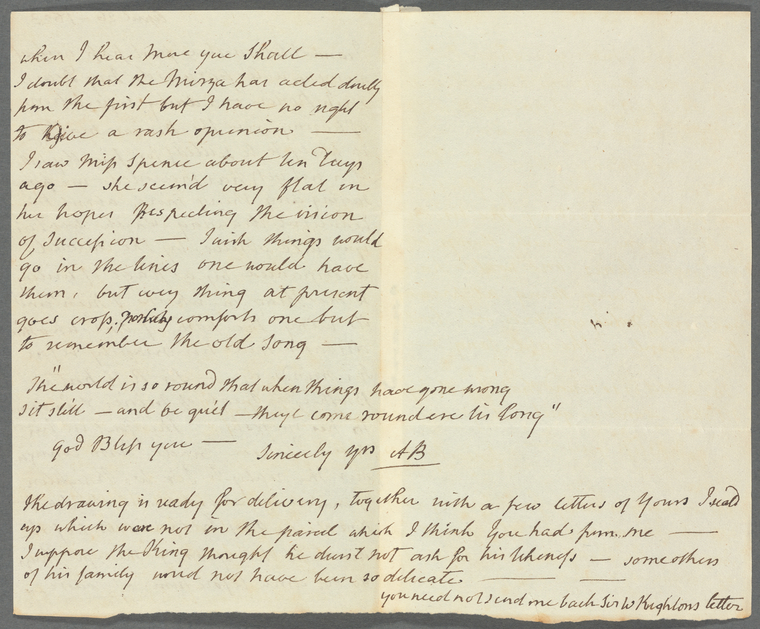 when I hear more you shall —
I doubt that the Mirza has acted doubly
from the first but I have no right
to give a rash opinion —
I saw Miss Spence about ten Days
ago — she seem'd very flat in
her hopes Respecting the
of Succession — I wish things would
go in the lines one would have
them, but every thing at present
goes cross, comforts one but
to remember the old song —
The "world is so round that when things have gone wrong
sit still — and be quiet — they'l come round ere tis long"
God Bless you — Sincerely yrs AB
The drawing is ready for delivery, together with a few letters of Yours I seald
up which were not in the parcel which I think You had from me —
I suppose the King thought he durst not ask for his likeness — some others
of his family would not have been so delicate — —
you need not send me back Sir W Knightons letter